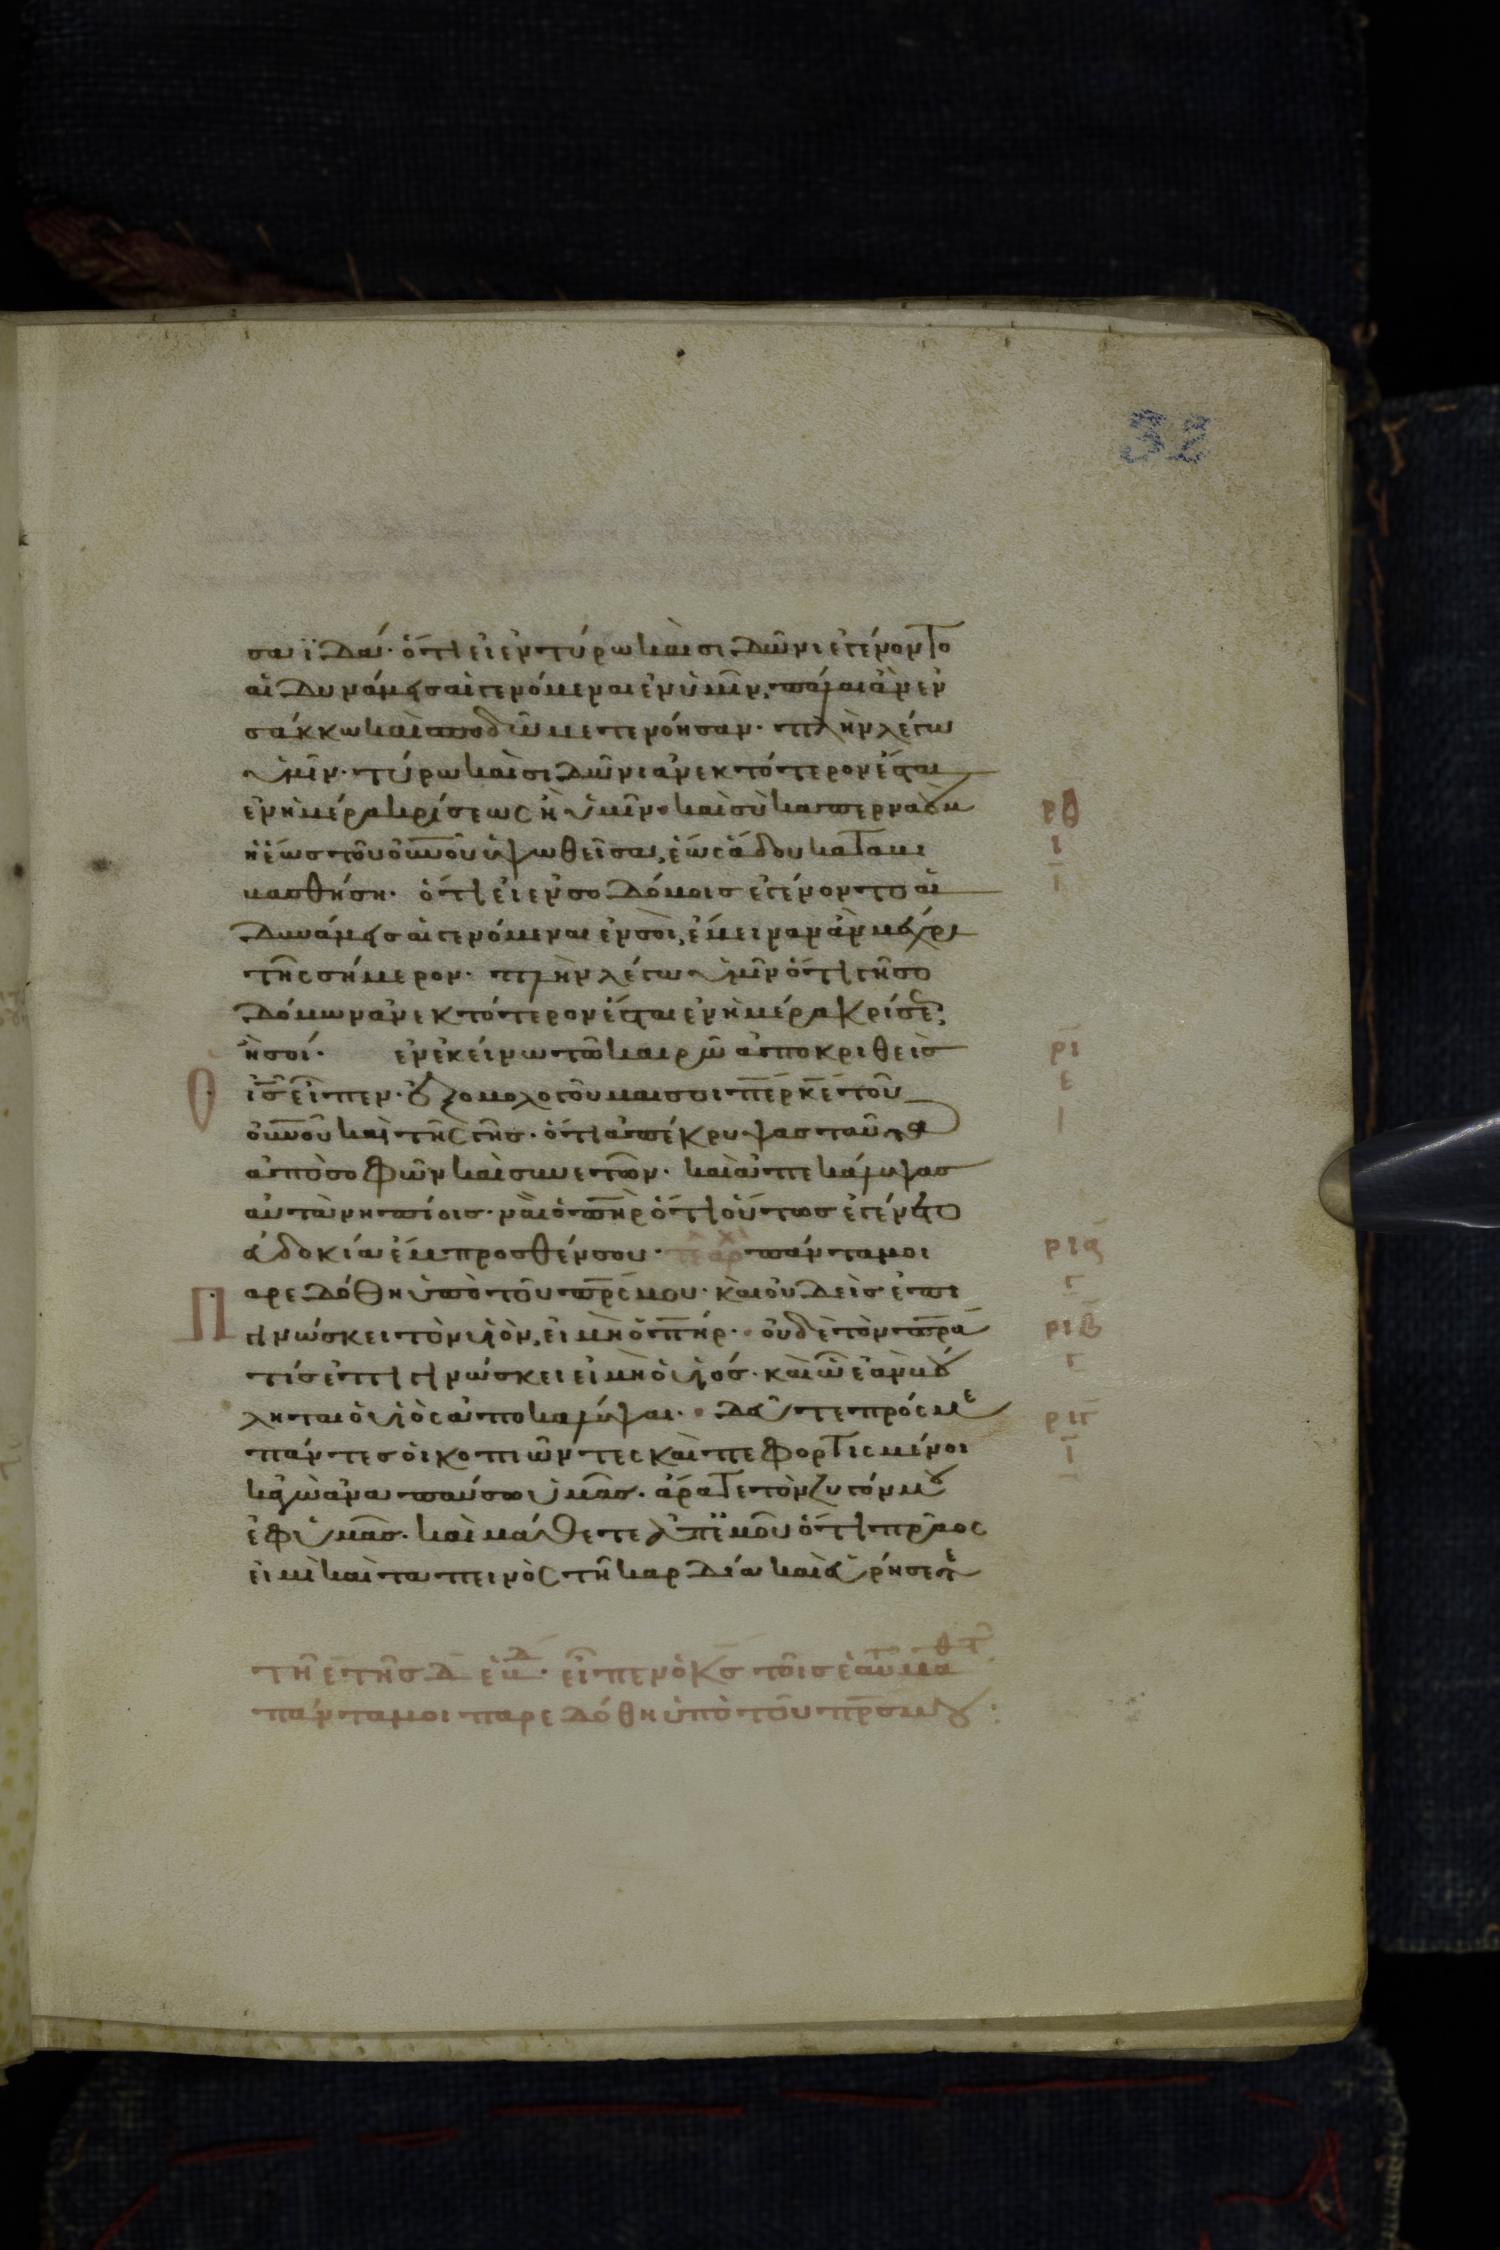 32
σαϊδάν· ὅτι εἰ ἐν τύρω καὶ σιδῶνι ἐγένοντο
αἱ δυνάμεις αἱ γενόμεναι ἐν ὑμῖν, πάλαι ἂν ἐν
σάκκω καὶ σποδῶ μετενόησαν· πλὴν λέγω
ὑμῖν· τύρω καὶ σιδῶνι ἀνεκτότερον ἔσται
ἐν ἡμέρα κρίσεως ἢ ὑμῖν· καὶ σὺ καπερναοὺμ
ρθ
ἡ ἕως τοῦ οὐνοῦ ὑψωθεῖσα, ἕως ἅδου κατα
ι
μασθήση· ὅτι εἰ ἐν σοδόμοις ἐγένοντο αἱ
δυνάμεις αἱ γενόμεναι ἐν σοὶ, ἔμειναν ἂν μέχρι
τῆς σήμερον· πλὴν λέγω ὑμῖν ὅτι γῆ σο
δόμων ἀνεκτότερον ἔσται ἐν ἡμέρα κρίσεως,
ἢ σοί· ἐν ἐκείνω τῶ καιρῶ ἀποκριθεὶς
ρι
ις εἶπεν· ἐξομολογοῦμαι σοι περ κε τοῦ
ε
οὐνοῦ καὶ τῆς γῆς· ὅτι ἀπέκρυψας ταῦτα
ἀπὸ σοφῶν καὶ συνετῶν· καὶ ἀπεκάλυψας
αὐτὰ νηπίοις· ναὶ ὁ πηρ ὅτι οὕτως ἐγένετο
εὐδοκία ἔμπροσθέν σου· πάντα μοι
ρια
Π
αρεδόθη ὑπὸ τοῦ πρς μου· καὶ οὐδεὶς ἐπι
γ
γινώσκει τὸν υἱὸν, εἰ μὴ ὁ πηρ· οὐδὲ τὸν πρα
ριβ
τίς ἐπιγινώσκει εἰ μὴ ὁ υἱός· καὶ ὧ ἐὰν βού
γ
ληται ὁ υἱὸς ἀποκαλύψαι· δεῦτε πρός με
ριγ
πάντες οἱ κοπιῶντες καὶ πεφορτισμένοι
ι
κἀγὼ ἀναπαύσω ὑμᾶς· ἄρατε τὸν ζυγόν μου
ἐφ ὑμᾶς· καὶ μάθετε ἀπ ἐμοῦ ὅτι πρᾶος
εἰμὶ καὶ ταπεινὸς τῆ καρδία καὶ εὑρήσετε
τῆ ε τῆς δ ἑβδ· εἶπεν ὁ κς τοῖς ἑαυτοῦ μαθτ
πάντα μοι παρεδόθη ὑπὸ τοῦ πρς μου: